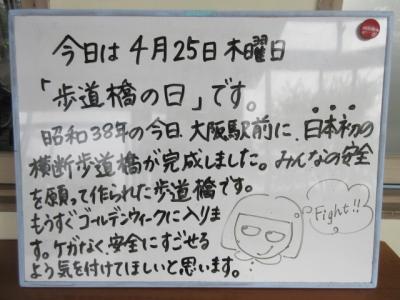 今日は4月25日木曜日
「歩道橋の日」です。
昭和38年の今日、大阪駅前に、日本初の
横断歩道橋が完成しました。みんなの安全
を願って作られた歩道橋です。
もうすぐゴールデンウィークに入りま
す。ケガなく、安全にすごせる
よう気を付けてほしいと思います。
Fight!!